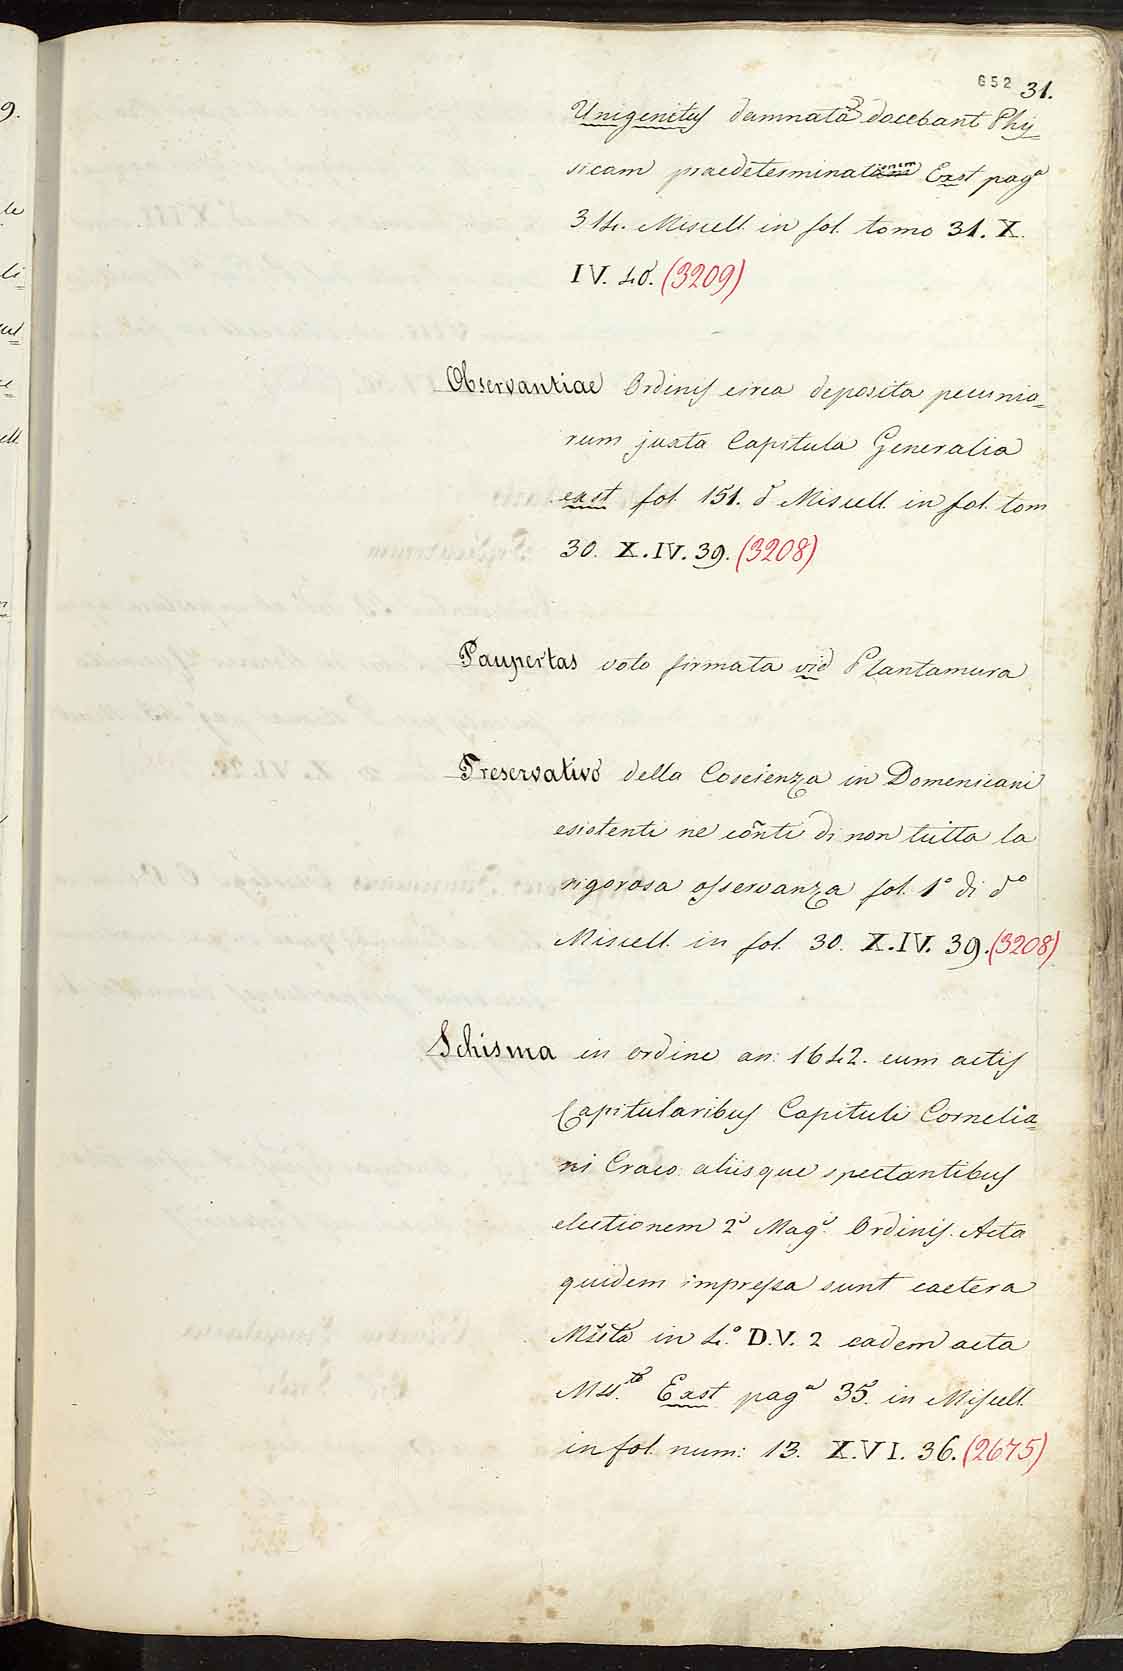 652 31.
Unigenitus damnata docebant Phy=
sicam praedeterminationem Exst pagª
314. Miscell. in fol. tomo 31. X.
IV. 40. (3209)
Observantiae Ordinis circa deposita pecunia=
rum juxta Capitula Generalia
exst fol. 151. d Miscell. in fol. tom
30. X. IV. 39. (3208)
Paupertas voto firmata vid Plantamura
Preservativo della Coscienza in Domenicani
esistenti ne cõnti di non tutta la
rigorosa osservanza fol. 1° di d°
Miscell. in fol. 30. X. IV. 39. (3208)
Schisma in ordine an: 1642. cum actis
Capitularibus Capituli Cornelia=
ni Craco. aliisque spectantibus
electionem 2i Magi Ordinis. Acta
quidem impressa sunt caetera
Mssta in 4.° D.V. 2 eadem acta
Mss.ta Exst pagª 35. in Miscell.
in fol. num: 13. X. VI. 36. (2675)